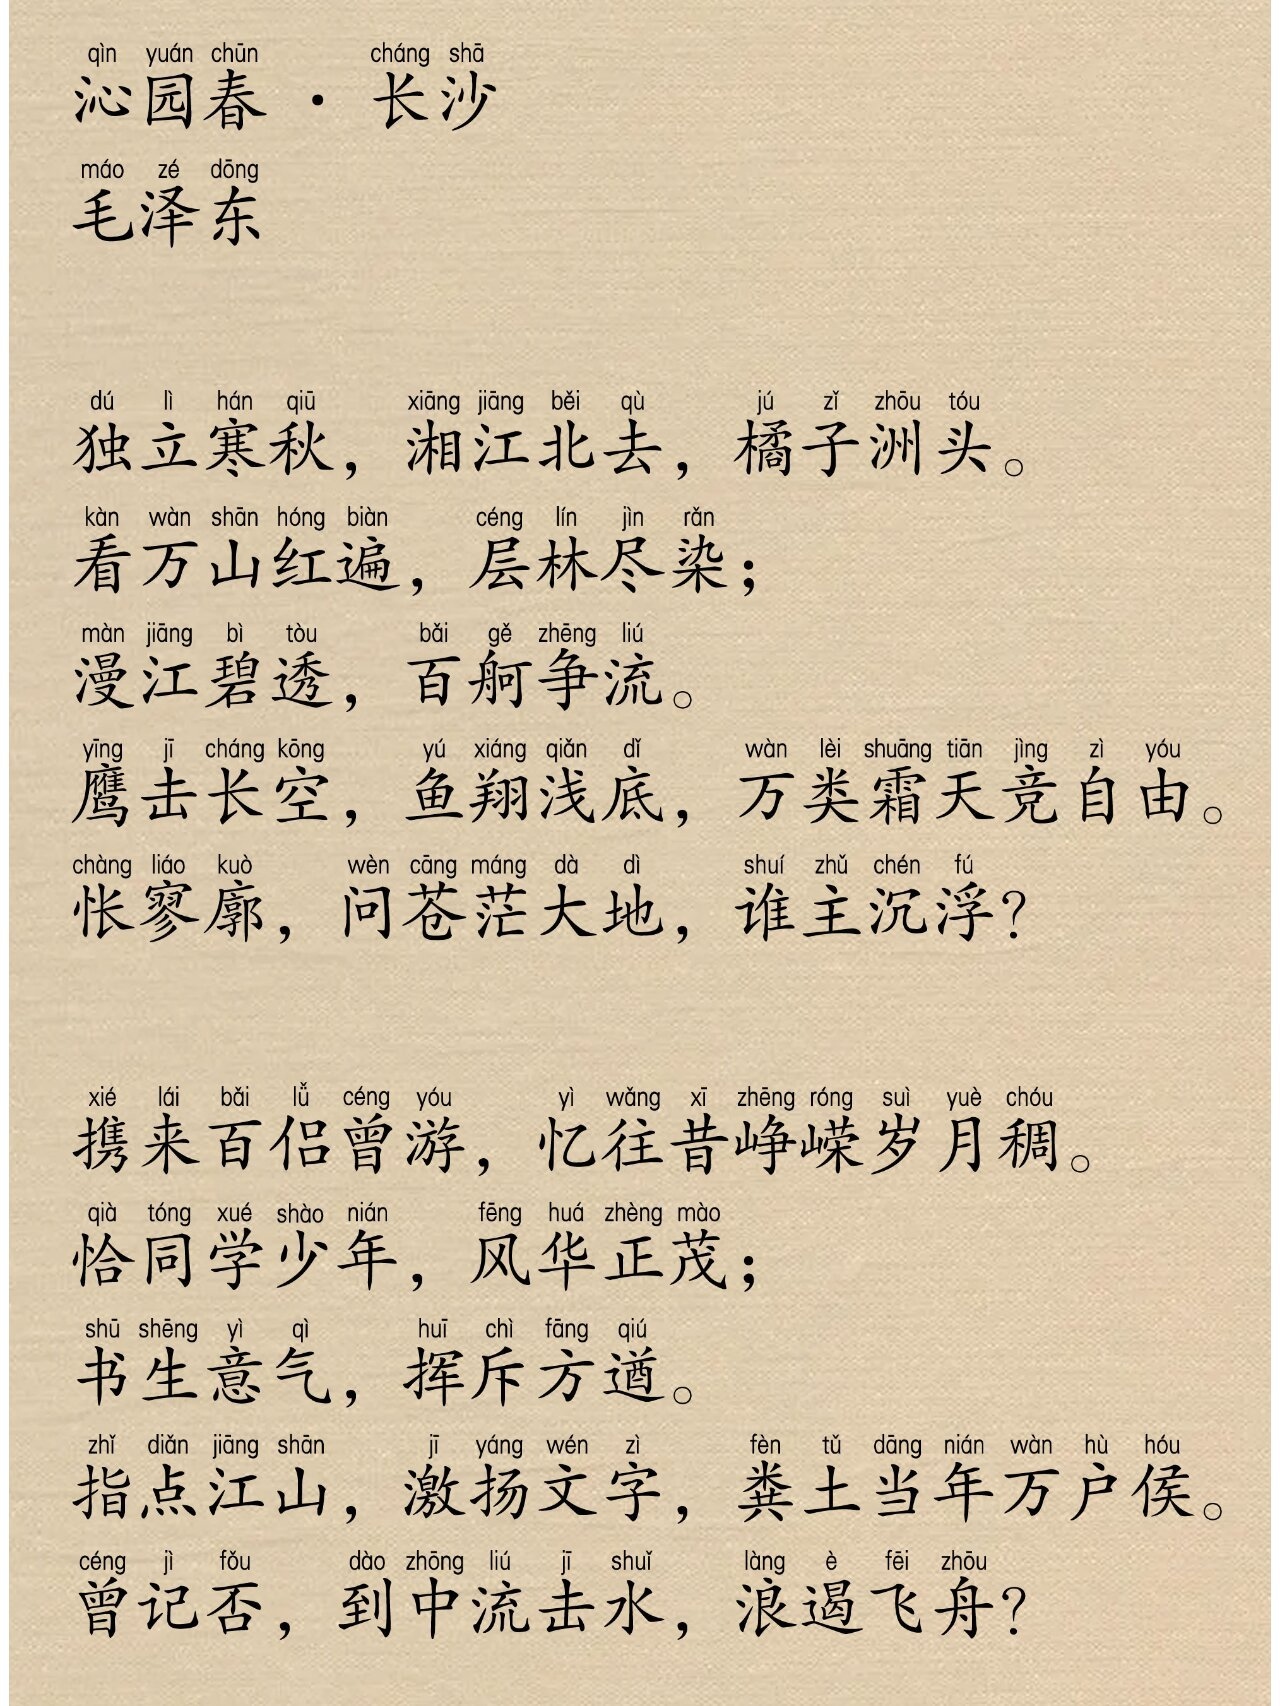 qìn yuán chūn cháng shā
沁园春 · 长沙
máo zé dōng
毛泽东
dú lì hán qiū xiāng jiāng běi qù jú zǐ zhōu tóu
独立寒秋，湘江北去，橘子洲头。
kàn wàn shān hóng biàn céng lín jìn rǎn
看万山红遍，层林尽染；
màn jiāng bì tòu bǎi gě zhēng liú
漫江碧透，百舸争流。
yīng jī cháng kōng yú xiáng qiǎn dǐ wàn lèi shuāng tiān jìng zì yóu
鹰击长空，鱼翔浅底，万类霜天竞自由。
chàng liáo kuò wèn cāng máng dà dì shuí zhǔ chén fú
怅寥廓，问苍茫大地，谁主沉浮？
xié lái bǎi lǚ céng yóu yì wǎng xī zhēng róng suì yuè chóu
携来百侣曾游，忆往昔峥嵘岁月稠。
qià tóng xué shào nián fēng huá zhèng mào
恰同学少年，风华正茂；
shū shēng yì qì huī chì fāng qiú
书生意气，挥斥方遒。
zhǐ diǎn jiāng shān jī yáng wén zì fèn tǔ dāng nián wàn hù hóu
指点江山，激扬文字，粪土当年万户侯。
céng jì fǒu dào zhōng liú jī shuǐ làng è fēi zhōu
曾记否，到中流击水，浪遏飞舟？